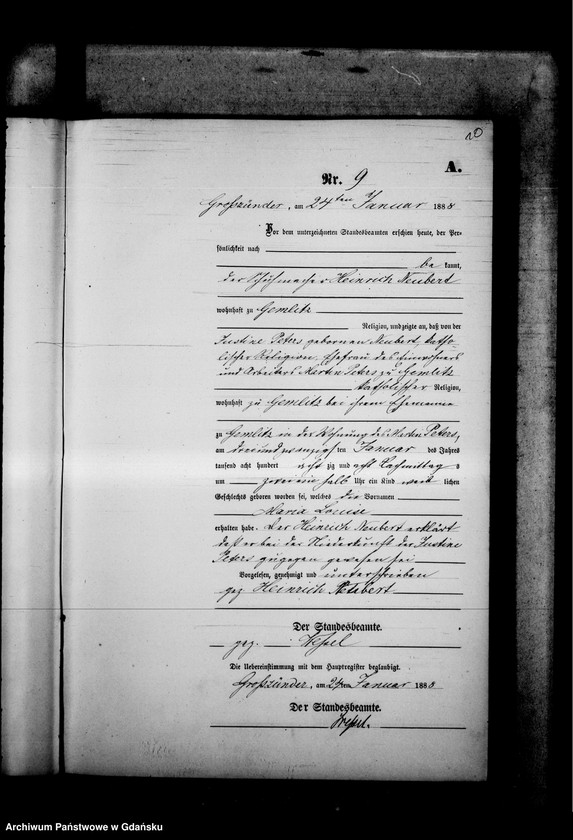 20
A.
Nr. 9
Großzünder, am 24ten Januar 1888
Vor dem unterzeichneten Standesbeamten erschien heute, der Per-
sönlichkeit nach
be kannt,
der Schuhmacher Heinrich Neubert
wohnhaft zu Gemlitz
Religion, und zeigte an, daß von der
Justine Peters geborenen Neubert, katho-
lischer Religion, Ehefrau des Einwohners
und Arbeiters Martin Peters zu Gemlitz
katholischer Religion,
wohnhaft zu Gemlitz bei ihrem Ehemanne
zu Gemlitz in der Wohnung des Martin Peters,
am dreiundzwanzigsten Januar des Jahres
tausend acht hundert acht zig und acht Nachmittags
um halb Uhr ein Kind weib lichen
Geschlechts geboren worden sei, welches die Vornamen
Maria Louise
erhalten habe. Der Heinrich Neubert erklärt
daß er bei der Niederkunft der Justine
Peters zugegen gewesen sei
Vorgelesen, genehmigt und unterschrieben
gez. Heinrich Neubert
Der Standesbeamte.
gez. Wessel
Die Uebereinstimmung mit dem Hauptregister beglaubigt.
Großzünder, am 24ten Januar 1888
Der Standesbeamte.
Wessel.
Archiwum Państwowe w Gdańsku